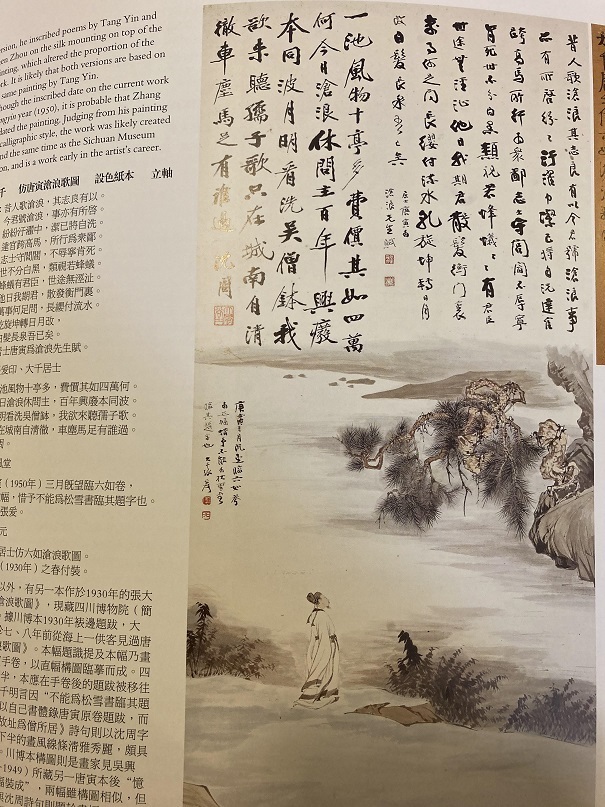 ersion, he inscribed poems by Tang Yin and
en Zhou on the silk mounting on top of the
inting, which altered the proportion of the
work. It is likely that both versions are based on
same painting by Tang Yin.
hough the inscribed date on the current work
ngyin year (1950), it is probable that Zhang
dated the painting. Judging from his painting
calligraphic style, the work was likely created
nd the same time as the Sichuan Museum
on, and is a work early in the artist's career.
千 仿唐寅滄浪歌圖 設色紙本 立軸
：昔人歌滄浪，其志良有以。
今君號滄浪，事亦有所啓。
紛紛行濯中，潔已將自洗。
達官跨高馬，所行為衆鄙。
志士守閭閻，不辱寧肯死。
世不分白黑，類視若蜂蟻。
蜂蟻有君臣，世途無涇沘。
他日我期君，散發衡門裏。
萬事何足問，長纓付流水。
乾旋坤轉日月改，
白髮長泉吾已矣。
居士唐寅爲滄浪先生賦。
爰印、大千居士
池風物十亭多，費價其如四萬何。
日滄浪休問主，百年興廢本同波。
明看洗吳僧鉢，我欲來聽孺子歌。
在城南自清徹，車塵馬足有誰過。
周。
風堂
（1950年）三月既望臨六如卷，
幅，惜予不能為松雪書臨其題字也。
張爰。
元
居士仿六如滄浪歌圖。
（1930年）之春付裝。
以外，有另一本作於1930年的張大
滄浪歌圖》，現藏四川博物院（簡
。據川博本1930年裱邊題跋，大
於七、八年前從海上一供客見過唐
浪歌圖》。本幅題識提及本幅乃畫
寅手卷，以直幅構圖臨摹而成。四
半，本應在手卷後的題跋被移往
千明言因“不能爲松雪書臨其題
以自己書體錄唐寅原卷題跋，而
故址爲僧所居》詩句則以沈周字
下半的畫風線條清雅秀麗，頗具
。川博本構圖則是畫家見吳興
-1949）所藏另一唐寅本後“憶
幅裝成”，兩幅雖構圖相似，但
昔人歌滄浪其志良有以今君號滄浪事
亦有所啓紛〻行濯中潔已將自洗達官
跨高馬所行為衆鄙志士守閭閻不辱寧
肯死世不分白黑類視若蜂蟻〻〻有君臣
世途無涇沘他日我期君散髮衡門裏
萬事何足問長纓付流水乾旋坤轉日月
改白髮長泉吾已矣
居士唐寅為
滄浪先生賦
一池風物十亭多費價其如四萬
何今日滄浪休問主百年興癈
本同波月明看洗吳僧鉢我
欲來聽孺子歌只在城南自清
徹車塵馬足有誰過 沈周
庚寅三月既望臨六如卷
為立幅惜予不能為松雪書
臨其題字也 大千張爰